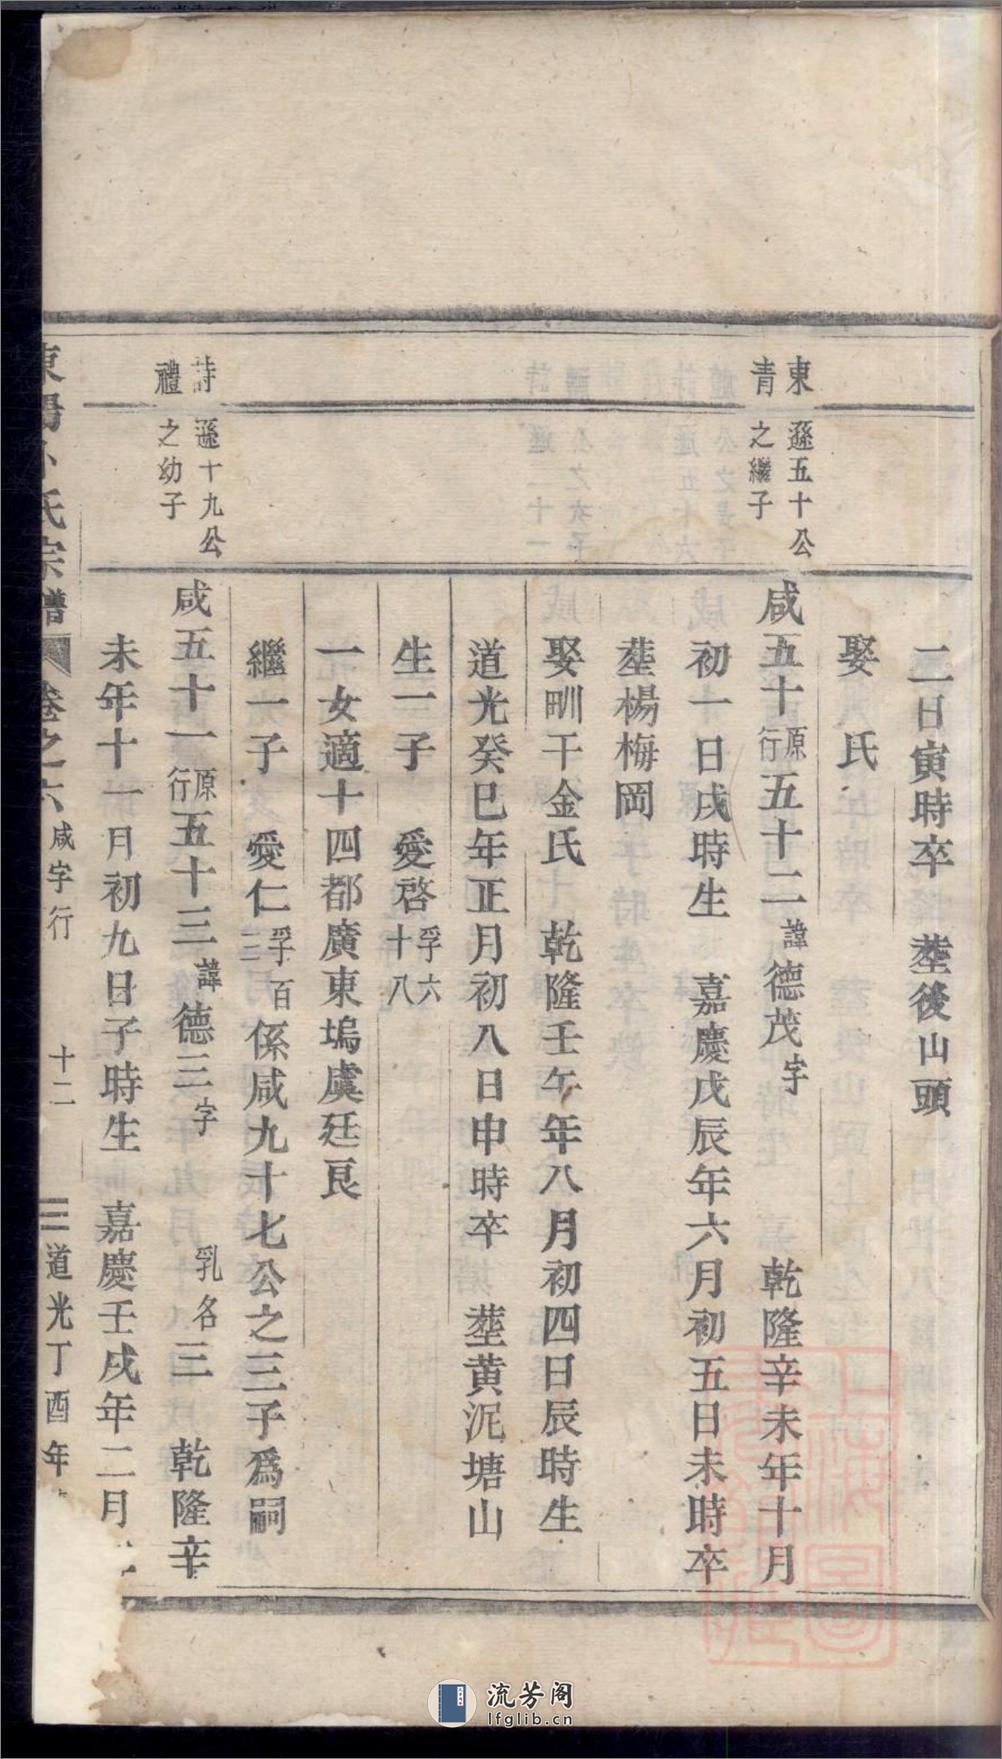 二日寅時卒 塟後山頭
娶 氏
東青
遜五十公之繼子
咸五十原行五十二諱德茂字 乾隆辛未年十月
初一日戌時生 嘉慶戊辰年六月初五日未時卒
塟楊梅岡
娶甽干金氏 乾隆壬午年八月初四日辰時生
道光癸巳年正月初八日申時卒 塟黄泥塘山
生一子 愛啓孚六十八
一女適十四都廣東塢虞廷良
繼一子 愛仁孚百三係咸九十七公之三子爲嗣
詩禮
遜十九公之幼子
咸五十一原行五十三諱德三字 乳名三 乾隆辛
未年十一月初九日子時生 嘉慶壬戌年二月
氏宗譜 卷之六 咸字行 十二 道光丁酉年
流芳阁
lfglib.cn